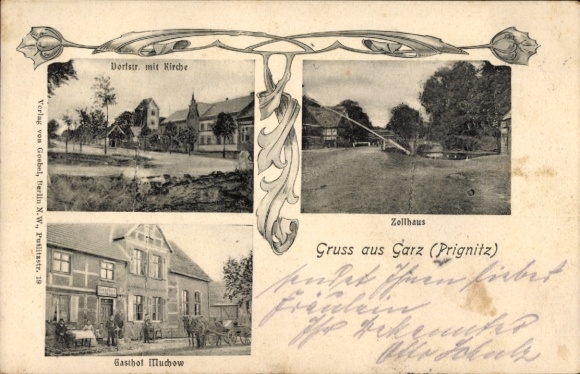 Dorfstr. mit Kirche
Verlag von Goebel, Berlin N.W., Putlitzstr. 19
Zollhaus
Gruss aus Garz (Prignitz)
sendet Ihnen lieber
Fräulein
Ihr Bekannter
Otto Schulz
Gasthof Muchow